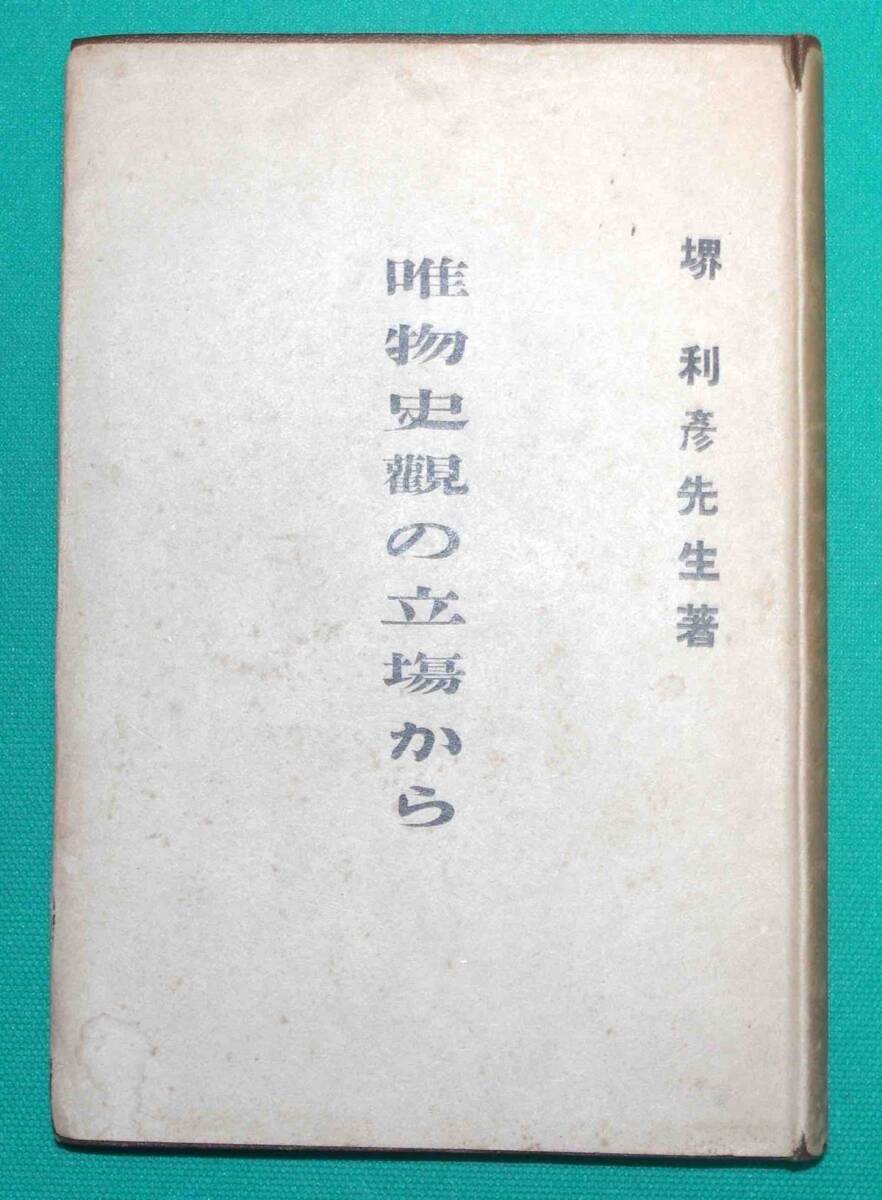 堺利彦先生著
唯物史觀の立塲から